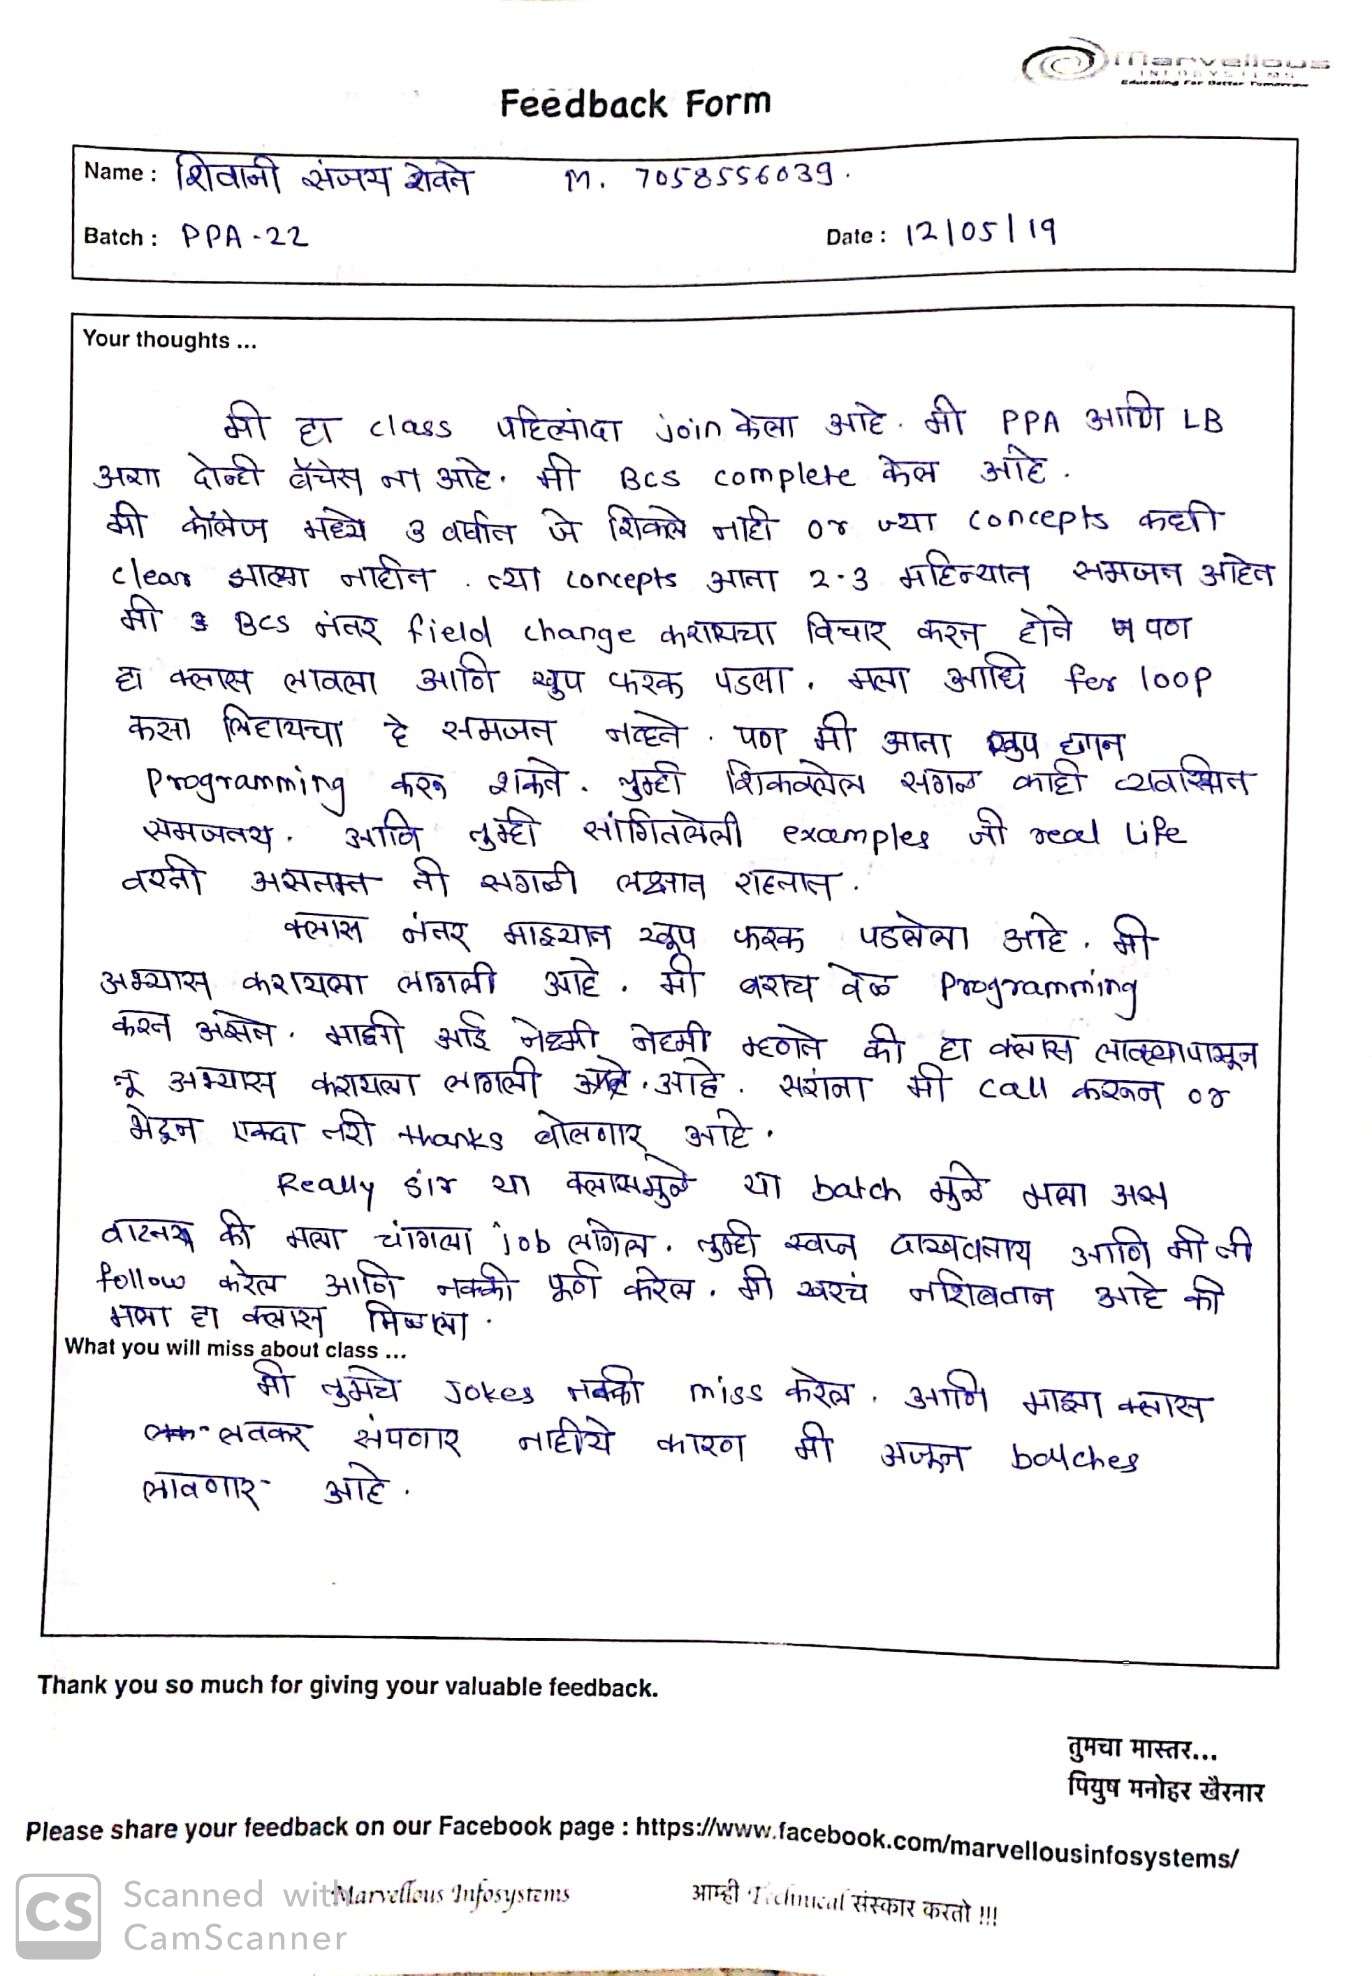 Marvellous
INFOSYSTEMS
Educating For Better Tomorrow
Feedback Form
Name : शिवानी संजय शेवते M. 7058556039.
Batch : PPA-22 Date : 12/05/19
Your thoughts ...
मी हा class पहिल्यांदा join केला आहे. मी PPA आणि LB
अशा दोन्ही बॅचेस ला आहे. मी BCS complete केल आहे.
मी कॉलेज मध्ये 3 वर्षात जे शिकले नाही or ज्या concepts कधी
clear झाल्या नाहीत. त्या concepts आता 2-3 महिन्यात समजत आहेत
मी BCS नंतर field change करायचा विचार करत होते पण
हा क्लास लावला आणि खुप फरक पडला. मला आधि for loop
कसा लिहायचा हे समजत नव्हते. पण मी आता खुप छान
Programming करु शकते. तुम्ही शिकवलेल सगळ काही व्यवस्थित
समजतय. आणि तुम्ही सांगितलेली examples जी real life
वरती असतात ती सगळी लक्षात राहतात.
क्लास नंतर माझ्यात खूप फरक पडलेला आहे. मी
अभ्यास करायला लागली आहे. मी बराच वेळ Programming
करत असते. माझी आई नेहमी नेहमी म्हणते की हा क्लास लावल्यापासून
तू अभ्यास करायला लागली आहे. सरांना मी call करून or
भेटून एकदा तरी thanks बोलणार आहे.
Really sir या क्लासमुळे या batch मुळे मला अस
वाटतय की मला चांगला job लागेल. तुम्ही स्वप्न दाखवताय आणि मी ती
follow करेल आणि नक्की पूर्ण करेल. मी खरचं नशिबवान आहे की
मला हा क्लास मिळाला.
What you will miss about class ...
मी तुमचे Jokes नक्की miss करेल. आणि माझा क्लास
लवकर संपणार नाहीये कारण मी अजून batches
लावणार आहे.
Thank you so much for giving your valuable feedback.
तुमचा मास्तर...
पियुष मनोहर खैरनार
Please share your feedback on our Facebook page : https://www.facebook.com/marvellousinfosystems/
Marvellous Infosystems आम्ही Technical संस्कार करतो !!!
CS Scanned with
CamScanner